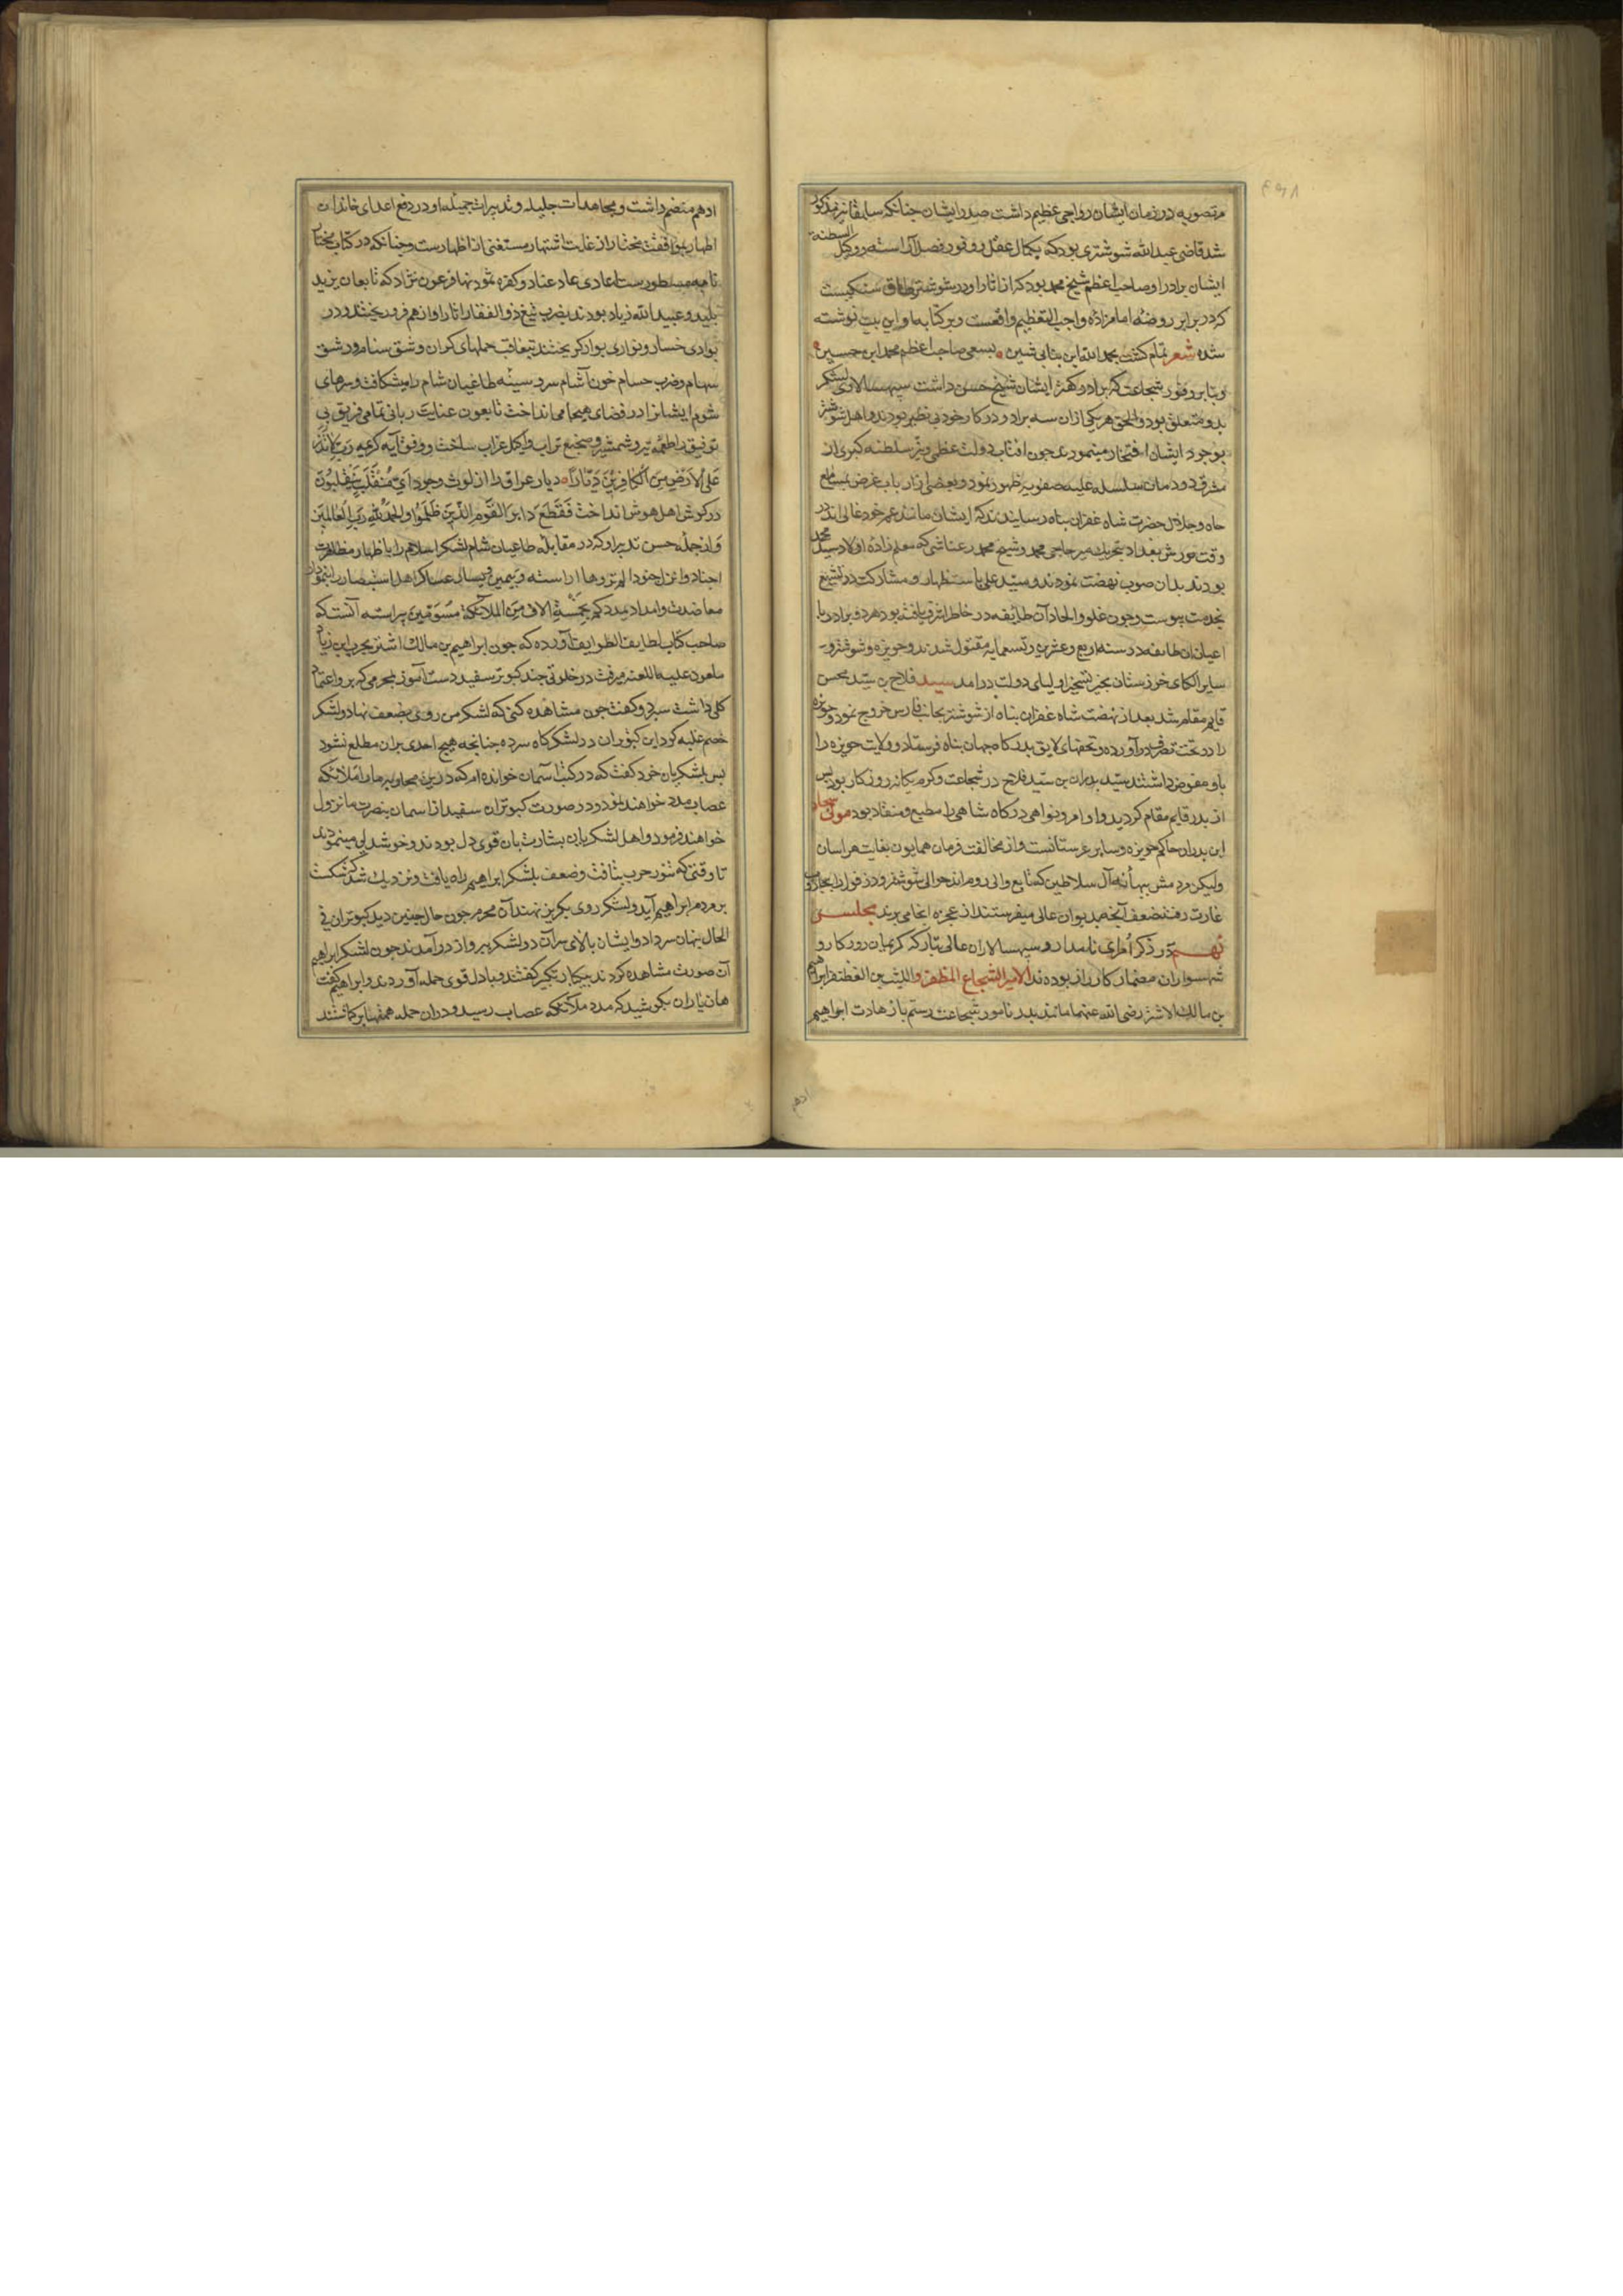 مرتضویه در زمان ایشان رواجی عظیم داشت صدر ایشان جنانکه سابقا نیز مذکور
شد قاضی عبد الله شوشتری بود که بکمال عقل و وفور فضل آراسته و وکیل السلطنه
ایشان برادر او صاحب اعظم شیخ محمد بود که از اثار او در شوشتر طاق سنکیست
که در برابر روضه امام زاده واجب التعظیم واقعست و بر کتابه او این بیت نوشته
شده شعر تمام کشت بحمد الله این بنای ثمین بسعی صاحب اعظم محمد ابن حسین
و بنابر وفور شجاعت که برادر کهتر ایشان شیخ حسن داشت سپهسالاری لشکر
بدو متعلق بود والحق هر یکی ازان سه برادر در کار خود بی نظیر بودند و اهل شوشتر
بوجود ایشان افتخار مینمودند جون افتاب دولت عظمی و نیر سلطنه کبری از
مشرق دودمان سلسله علیه صفویه ظهور نمود و بعضی از ارباب غرض بمسامع
جاه و جلال حضرت شاه غفران پناه رسانیدند که ایشان مانند عم خود غالی اند در
وقت یورش بغداد بتحریک میر حاجی محمد و شیخ محمد رعناشی که معلم زاده اولاد سید محمد
بودند بدان صوب نهضت نمودند و سید علی باستظهار و مشارکت در تشیع
بخدمت پیوست و جون غلو و الحاد آن طایفه در خاطر اشرف یافته بود هر دو برادر با
اعیان ان طایفه در سنه اربع و عشرین و تسعمایه مقتول شدند و حویزه و شوشتر و
سایر الکای خوزستان بحیز تسخیر اولیای دولت در امد سید فلاح بن سید محسن
قایم مقام شد بعد از نهضت شاه غفران پناه از شوشتر بجانب فارس خروج نمود و حویزه
را در تحت تصرف در آورده و تحفهای لایق بدرکاه جهان پناه فرستاد و ولایت حویزه را
باو مفوض داشتند سید بدران بن سید فلاح در شجاعت و کرم یکانه روزکار بود پس
از پدر قایم مقام کردید و اوامر و نواهی درکاه شاهی را مطیع و منقاد بود مولی سجاد
ابن بدران حاکم حویزه و سایر عربستانست و از مخالفت فرمان همایون بغایت هراسان
ولیکن مردمش ببهانه آل سلاطین که تابع والی روم اند حوالی شوشتر و دزفول را بحاروب
غارت رفته ضعف آنچه بدیوان عالی میفرستند از عجزه انجا می برند مجلس
نهم در ذکر أمرای نامدار و سپهسالاران عالی تبار که کرکیان روزکار و
شهسواران مضمار کارزار بوده اند الامیر الشجاع المظفر واللیث بن الغضنفر ابراهیم
بن مالک الاشتر رضی الله عنهما مانند پدر نامور شجاعت رستم با زهادت ابراهیم
ادهم
ادهم منضم داشت و مجاهدات جلیله و تدبیرات جمیله او در دفع اعدای خاندان
اظهار موافقت مختار از غایت اشتهار مستغنی از اظهارست و جنانکه در کتاب مختار
نامه مسطورست اعادی عاد عناد و کفره ثمود نهاد فرعون نژاد که تابعان یزید
پلید و عبید الله زیاد بودند بضرب تیغ ذو الفقار اثار او از هم فرو ریختند و در
بوادی خسار و نواری بوار کریختند تبعاقب حملهای کران و شق سنام و رشق
سهام و ضرب حسام خون آشام سر و سینه طاغیان شام را میشکافت و سرهای
شوم ایشانرا در فضای هیجا می انداخت تا بعون عنایت ربانی تمامی فریق بی
توفیق را طعمه تیر و شمشیر و ضجیع تراب و اکل غراب ساخت و وفق آیه کریمه رَبِّ لَا تَذَرْ
عَلَی الْاَرْضِ مِنَ الْکَافِرِیْنَ دَیَّاراً دیار عراق را از لوث وجود اَیَّ مُنْقَلَبٍ یَنْقَلِبُوْنَ
در کوش اهل هوش انداخت فَقُطِعَ دَابِرُ الْقَوْمِ الَّذِیْنَ ظَلَمُوْا وَالْحَمْدُ لِلّٰهِ رَبِّ الْعَالَمِیْنَ
و از جمله حسن تدبیر او که در مقابله طاغیان شام لشکر اسلام را باظهار مظاهرت
اجناد وانزل جنودا لم تروها اراسته و بیمین و یسار عساکر اهل استبصار را بنمودار
معاضدت و امداد یمددکم بخمسة الاف من الملائکة مسومین پیراسته آنست که
صاحب کتاب لطایف الطوایف آورده که جون ابراهیم بن مالک اشتر بحرب ابن زیاد
ملعون علیه اللعنه میرفت در خلوتی جند کبوتر سفید دست آموز بمحرمی که برو اعتماد
کلی داشت سپرد و کفت جون مشاهده کنی که لشکر من روی بضعف نهاد و لشکر
خصم غلبه کرد این کبوتران در لشکرکاه سر ده جنانجه هیچ احدی بران مطلع نشود
پس بلشکریان خود کفت که در کتب آسمان خوانده ام که درین محاربه مارا ملائکه
غصاب مدد خواهند نمود و در صورت کبوتران سفید از اسمان بنصرت ما نزول
خواهند فرمود و اهل لشکر باین بشارت بان قوی دل بودند و خوشدلی مینمودند
تا وقتی که تنور حرب بتافت و ضعف بلشکر ابراهیم راه یافت و نزدیک شد که شکست
بر مردم ابراهیم آید و لشکر روی بکریز نهند آن محرم جون حال جنین دید کبوتران فی
الحال پنهان سر داد و ایشان بالای سر آن دو لشکر پرواز در آمدند جون لشکر ابراهیم
آن صورت مشاهده کردند بیکبار تکبیر کفتند و با دل قوی حمله آوردند و ابراهیم کفت
هان یاران بکوشید که مدد ملائکه غصاب رسید و دران حمله